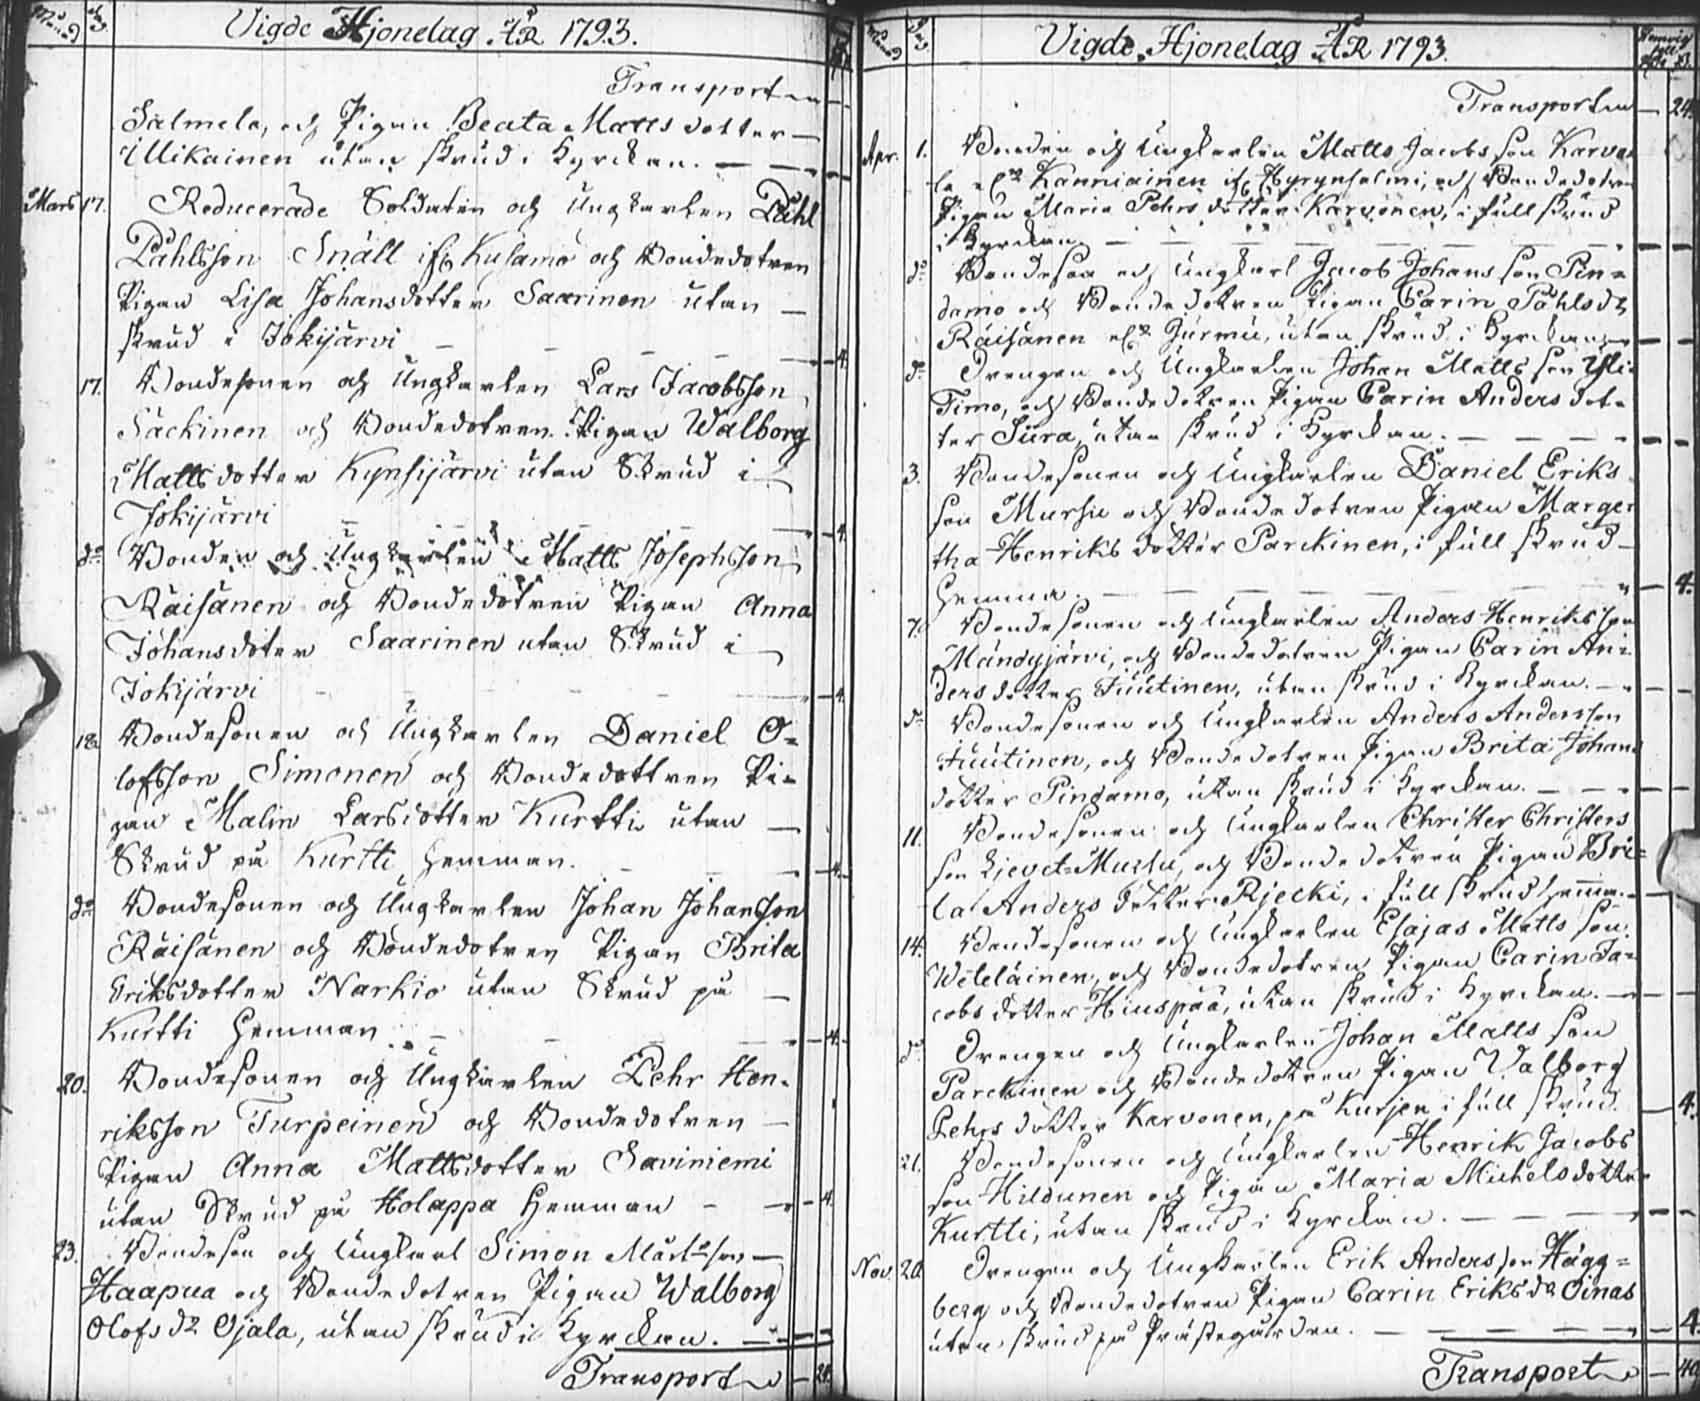 Vigde Hjonelag ÅR 1793.
Transport
Salmela, och Pigan Beata Matts dotter
Mikainen utan skrud i Kyrckan.
Mars 17. Reducerade Soldaten och Ungkarlen Påhl
Påhlsson Snäll ifr. Kusamo och Bondedotren
Pigan Lisa Johansdotter Saarinen utan
skrud i Jokijärvi 4.
17. Bondesonen och Ungkarlen Lars Jacobsson
Säckinen och Bondedotren Pigan Walborg
Mattsdotter Kynsijärvi utan Skrud i
Jokijärvi 4.
do Bonden och Ungkarlen Matts Josephsson
Räisänen och Bondedotren Pigan Anna
Johansdoter Saarinen utan Skrud i
Jokijärvi 4.
18. Bondesonen och Ungkarlen Daniel O=
lofsson Simonen och Bondedottren Pi=
gan Malin Larsdotter Kurtti utan
Skrud på Kurtti Hemman. 4.
do Bondesonen och Ungkarlen Johan Johansson
Räisänen och Bondedotren Pigan Brita
Eriksdotter Narkio utan Skrud på
Kurtti Hemman 4.
20. Bondesonen och Ungkarlen Pehr Hen=
riksson Turpeinen och Bondedotren
Pigan Anna Mattsdotter Saviniemi
utan Skrud på Holappa Hemman 4.
23. Bondeson och Ungkarl Simon Mårtsson
Haapua och Bondedotren Pigan Walborg
Olofs dr Ojala, utan skrud i Kyrckan.
Transport 24.
Vigde Hjonelag ÅR 1793.
Transport 24.
Apr. 1. Bonden och Ungkarlen Matts Jacobs son Karva
la elr Kanniainen ifr Hyrynsalmi, och Bondedotren
Pigan Maria Pehrs dotter Karvonen, i full skrud
i Kyrckan
do Bondeson och Ungkarl Jacob Johans son Pin=
damo och Bondedotren Pigan Carin Påhls dr
Räisänen elr Jurmu, utan skrud i Kyrckan
do Drengen och Ungkarlen Johan Matts son Yli=
Timo, och Bondedotren Pigan Carin Anders dot=
ter Sura, utan skrud i Kyrckan.
3. Bondesonen och Ungkarlen Daniel Eriks
son Mursu och Bondedotren Pigan Marge
tha Henriks dotter Parckinen, i full skrud
Hemma 4.
7. Bondesonen och Ungkarlen Anders Henriks son
Mändyjärvi, och Bondedotren Pigan Carin An=
ders dotter Juutinen, utan skrud i Kyrckan.
do Bondesonen och Ungkarlen Anders Andersson
Juutinen, och Bondedotren Pigan Brita Johans
dotter Pindamo, utan skrud i Kyrckan.
11. Bondesonen och Ungkarlen Christer Christers
son Mursu, och Bondedotren Pigan Bri=
ta Anders dotter Rjecki, i full skrud hemma.
14. Bondesonen och Ungkarlen Esajas Matts son
Wetelainen, och Bondedotren Pigan Carin Ja=
cobs dotter Hiuspää, utan skrud i Kyrckan.
do Drengen och Ungkarlen Johan Matts son
Parckinen och Bondedotren Pigan Valborg
Pehrs dotter Karvonen, på Kurjen i full skrud. 4.
21. Bondesonen och Ungkarlen Henrik Jacobs
son Hildunen och Pigan Maria Michels dotter
Kurtti, utan skrud i Kyrckan.
Nov. 20. Drengen och Ungkarlen Erik Anders son Hägg=
berg och Bondedotren Pigan Carin Eriks dr Oinas
utan skrud på Prästegården. 4.
Transport 40